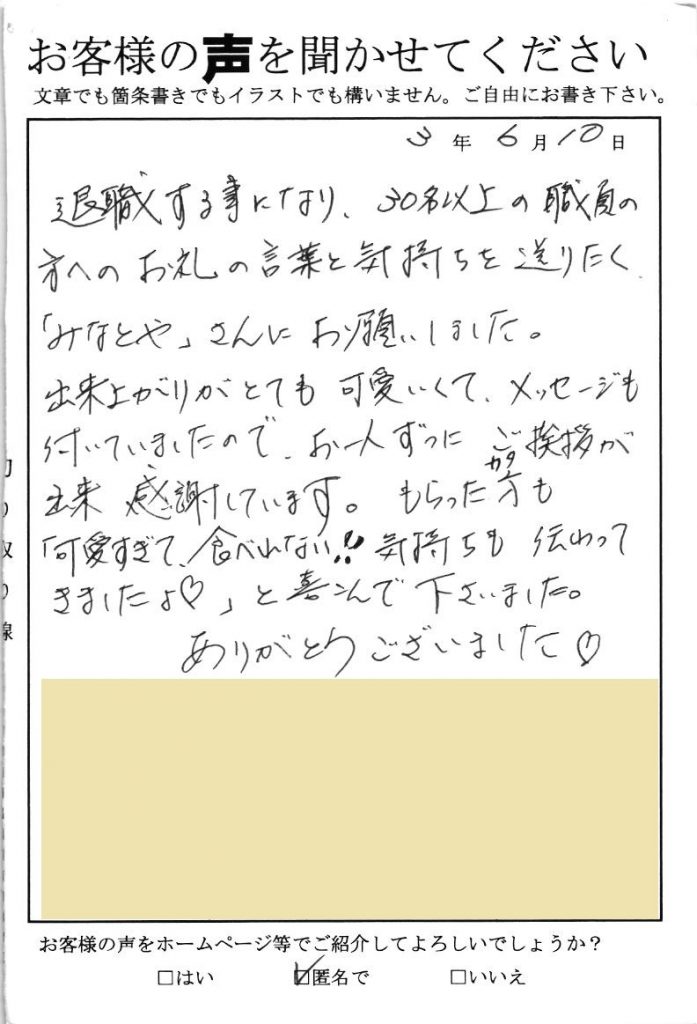 お客様の声を聞かせてください
文章でも箇条書きでもイラストでも構いません。ご自由にお書き下さい。
3年6月10日
退職する事になり、30名以上の職員の
方へのお礼の言葉と気持ちを送りたく
「みなとや」さんにお願いしました。
出来上がりがとても可愛いくて、メッセージも
付いていましたので、お一人ずつにご挨拶が
出来 感謝しています。もらった方も
カタ
「可愛すぎて、食べれない!! 気持ちも伝わって
きましたよ♡」と喜こんで下さいました。
ありがとうございました♡
お客様の声をホームページ等でご紹介してよろしいでしょうか？
□はい ☑匿名で □いいえ
取り線